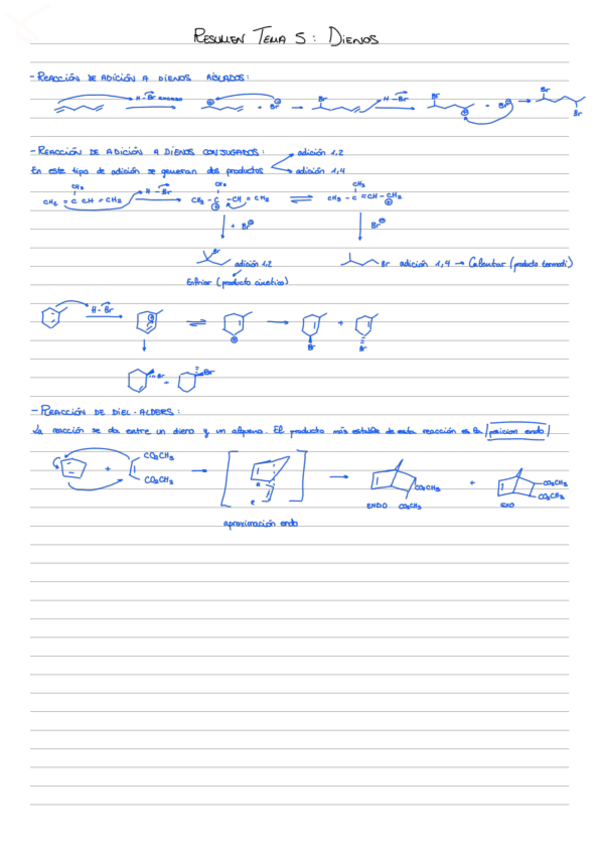 RESUMEN TEMA 5: DIENOS
- REACCIÓN DE ADICIÓN A DIENOS AISLADOS:
H - Br
Br
H - Br
Br
Br
+ Br
+ Br
Br
- REACCIÓN DE ADICIÓN A DIENOS CONJUGADOS:
adición 1,2
En este tipo de adición se generan dos productos
adición 1,4
CH3
H - Br
CH3
CH3
CH2 = C CH = CH2
CH3 - C - CH = CH2
CH3 - C = CH - CH2
+ Br
Br
Br
adición 1,2
Br adición 1,4 → Calentar (producto termodi)
Enfriar (producto cinético)
H - Br
+
Br
Br
Br
+
Br
- REACCIÓN DE DIEL-ALDERS:
La reacción se da entre un dieno y un alqueno. El producto más estable de esta reacción es la posicion endo
+
CO2CH3
CO2CH3
CO2CH3
ENDO CO2CH3
+
CO2CH3
CO2CH3
EXO
aproximación endo